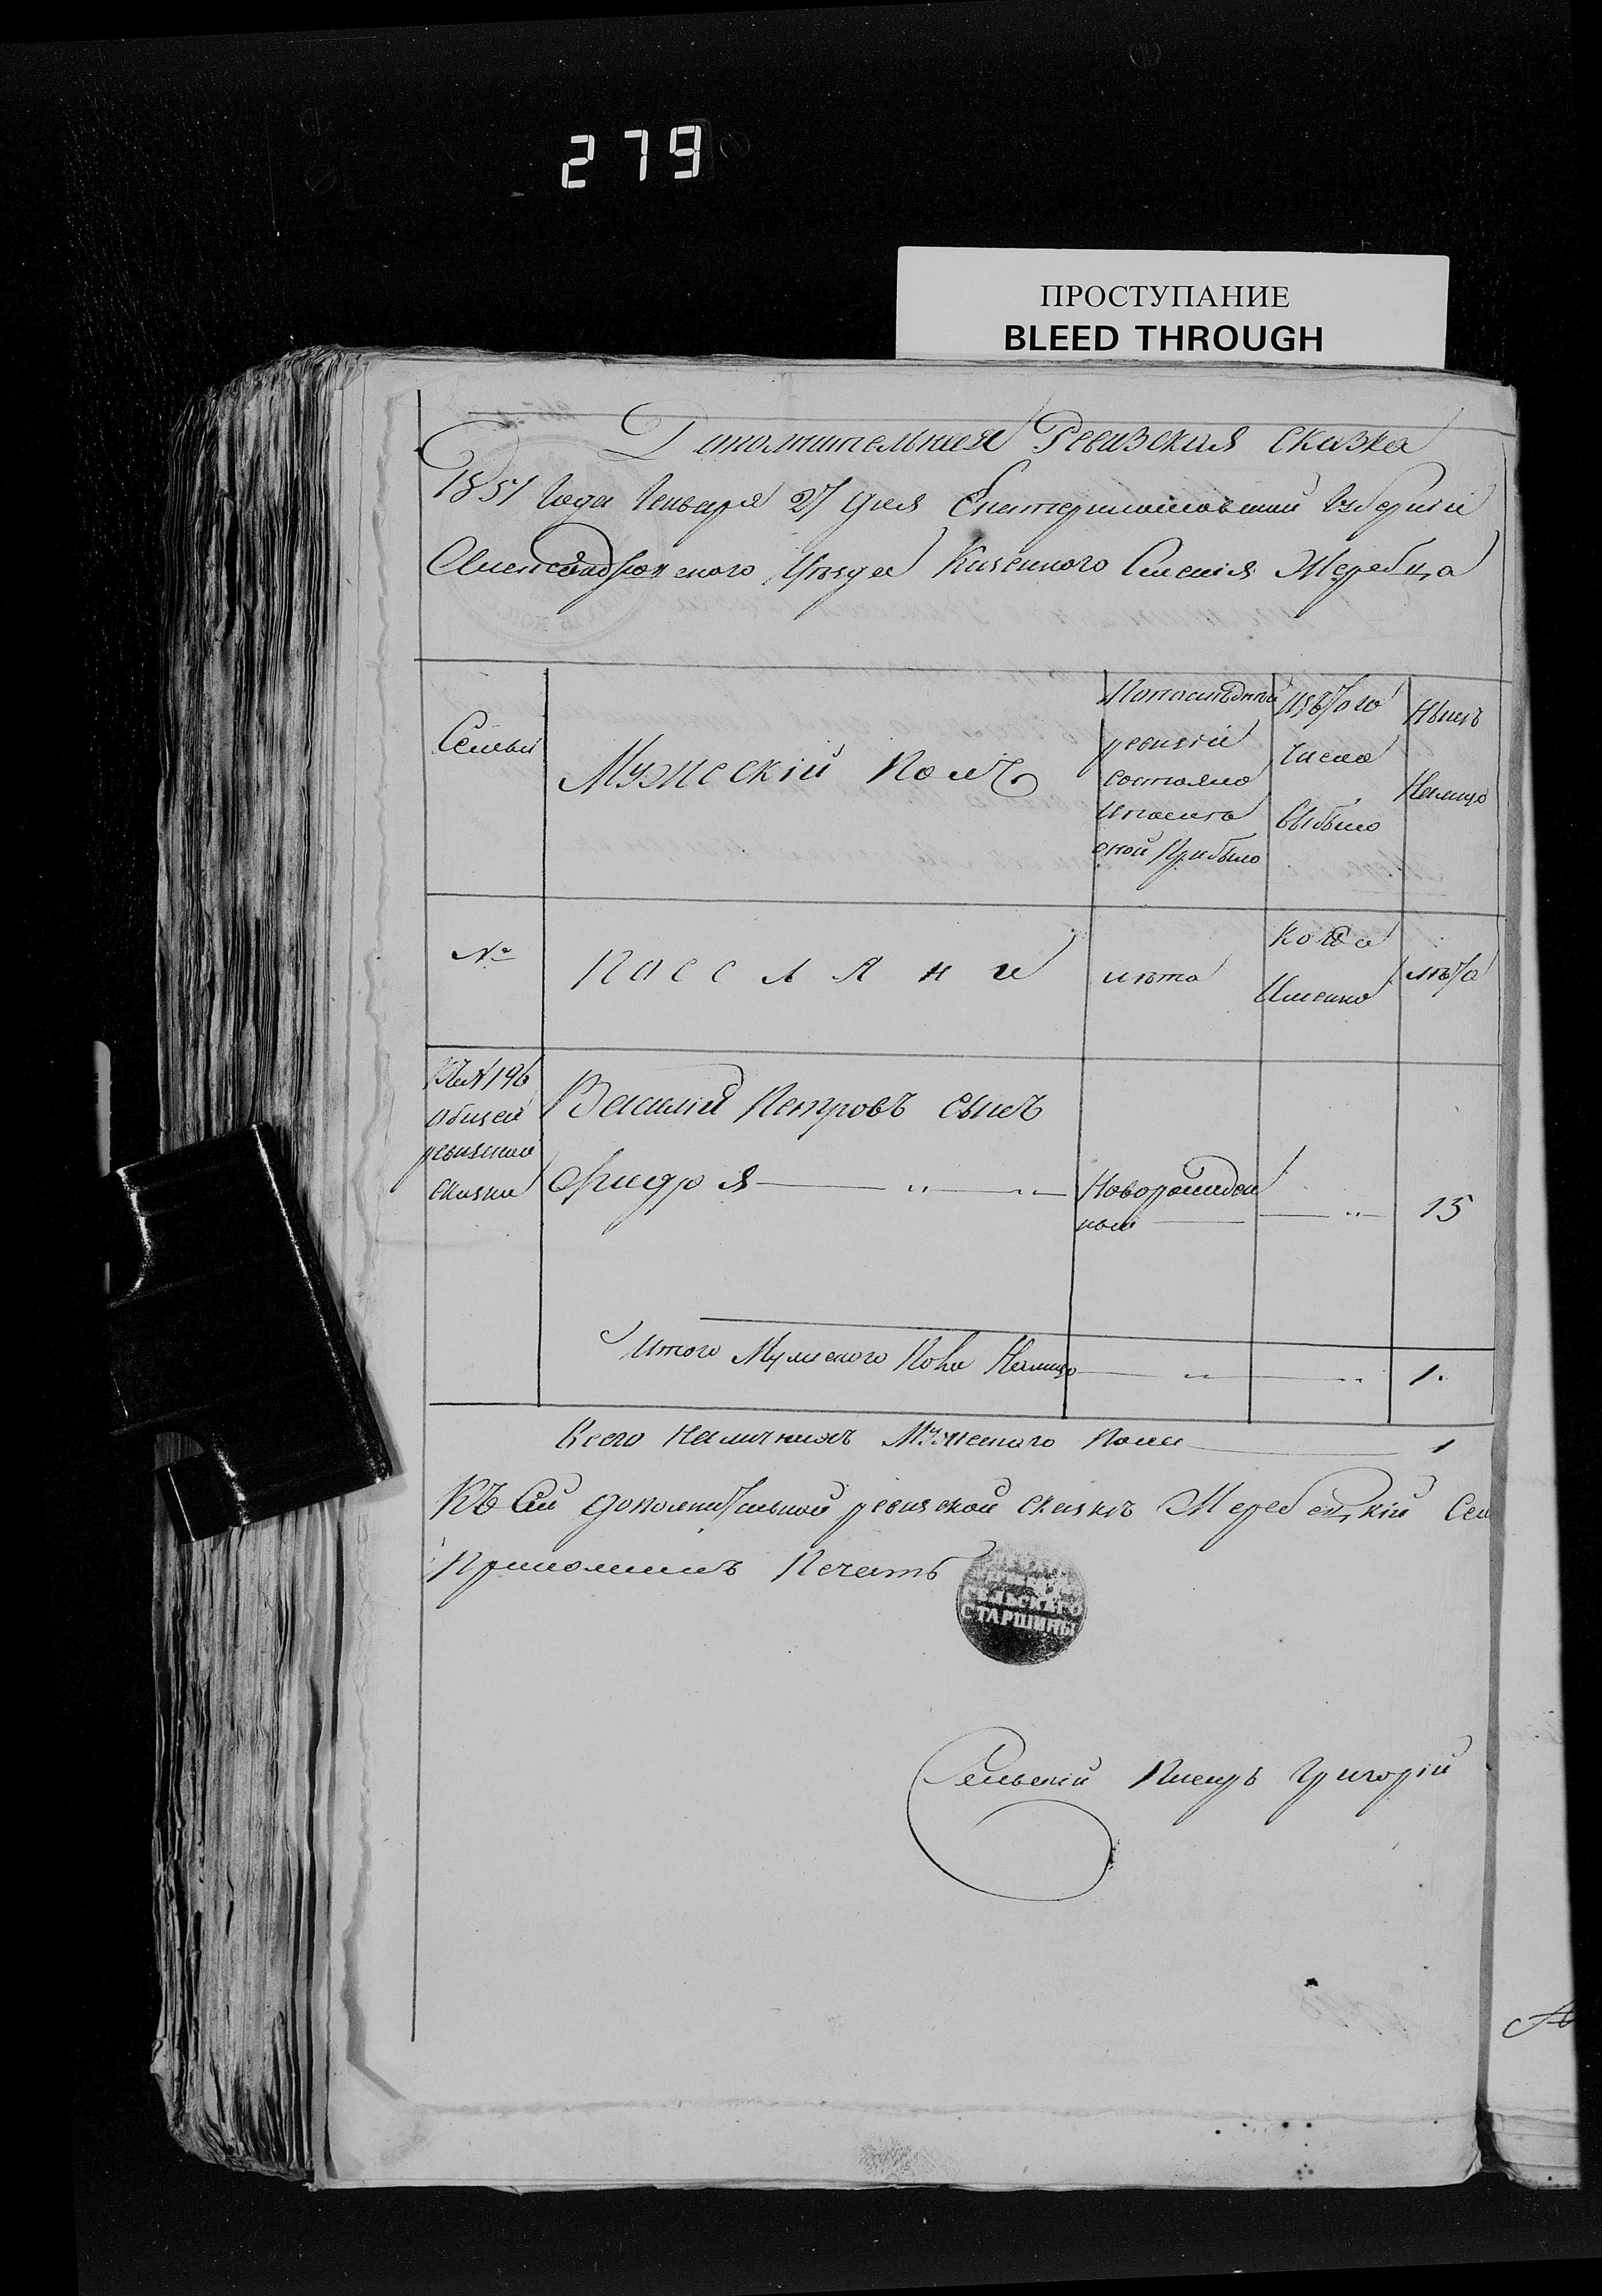 279
ПРОСТУПАНИЕ
BLEED THROUGH
Дополнительная Ревизская сказка
1851 Года Генваря 27 дня Екатеринославской Губерніи
Александровского Уѣзда Казенного Селенія Жеребца
Семьи
Мужескій Полъ
Попослѣднѣй
ревизіи
состояло
ипослѣ
оной Прибыло
Изътого
Числа
выбыло
Нынѣ
Налицо
№
Поселяне
лѣта
Когда
Именно
лѣта
Къ№196
общей
ревизской
сказки
Василій Петровъ сынъ
Новорожден
ной
15
Итого Мужеского Пола Налицо
1.
Всего Наличныхъ Мужеского Пола 1
Къ Сей дополнительной ревизской сказкѣ Жеребецкій Сел
Приложилъ Печать
СЕЛЬСКАГО
СТАРШИНЫ
Сельскій Писарь Григорій